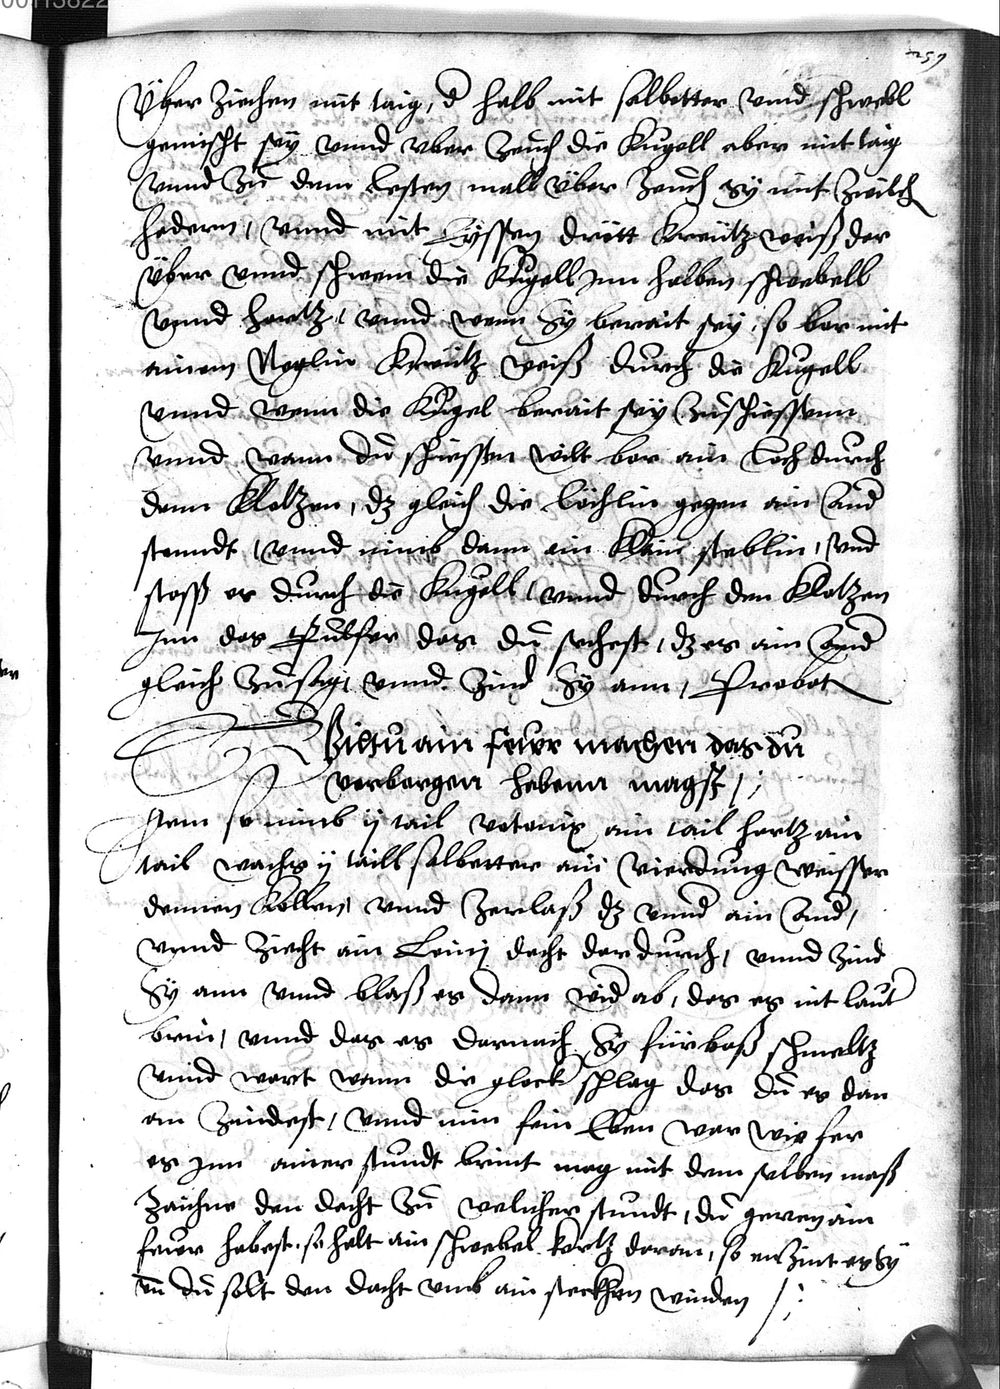 259
Über ziechen mit taig, d halb mit salbetter vnnd schwebl
gemischt sey vnnd vber zeuch die Kugell aber mit taig
vnnd zu dem lesten mall über zeuch sy mit zwilch
hedern, vnnd mit Eyssen drött kreutz weiß dar
über vnnd schwem die Kugell Inn halben schwebell
vnnd hartz, vnnd wenn sy berait sey, so bor mit
ainem Neglin Kreutz weiß durch die Kugell
vnnd wenn die Kugel berait sey zuschiessenn
vnnd wann du schiessen wilt bor ain loch durch
denn Klotzen, dz gleich die löchlin gegen ain and
stenndt, vnnd nimb dann ein klain steblin, vnd
stoss es durch die Kugell, vnnd durch den Klotzen
Inn das Pulfer das du sechest, dz es ain and
gleich zusag, vnnd zind sy ann, Probat
Wiltu ain feuer machen das du
verborgen habenn magst,
Item so nimb ij tail votonix ain tail hartz ain
tail wachs ij taill salbetter ain vierdung weisser
dennen kollen, vnnd zerlaß dz vnnd ain and,
vnnd ziecht ain Leini dacht dardurch, vnnd zind
Sy ann vnnd blaß es dann wid ab, das es nit laut
brin, vnnd das es darnach sy fürbaß schmeltz
vnnd wart wann die glock schlag das du es dan
an zindest, vnnd nim fein Eben war wie fer
es Inn ainer stundt brint mag mit dem selben maß
zaichne den dacht zu welicher stundt, du geren ain
feuer habest, so halt ain schwebel kertz daran, so enzint es sy
vn du solt den dacht vmb ain steckhen winden